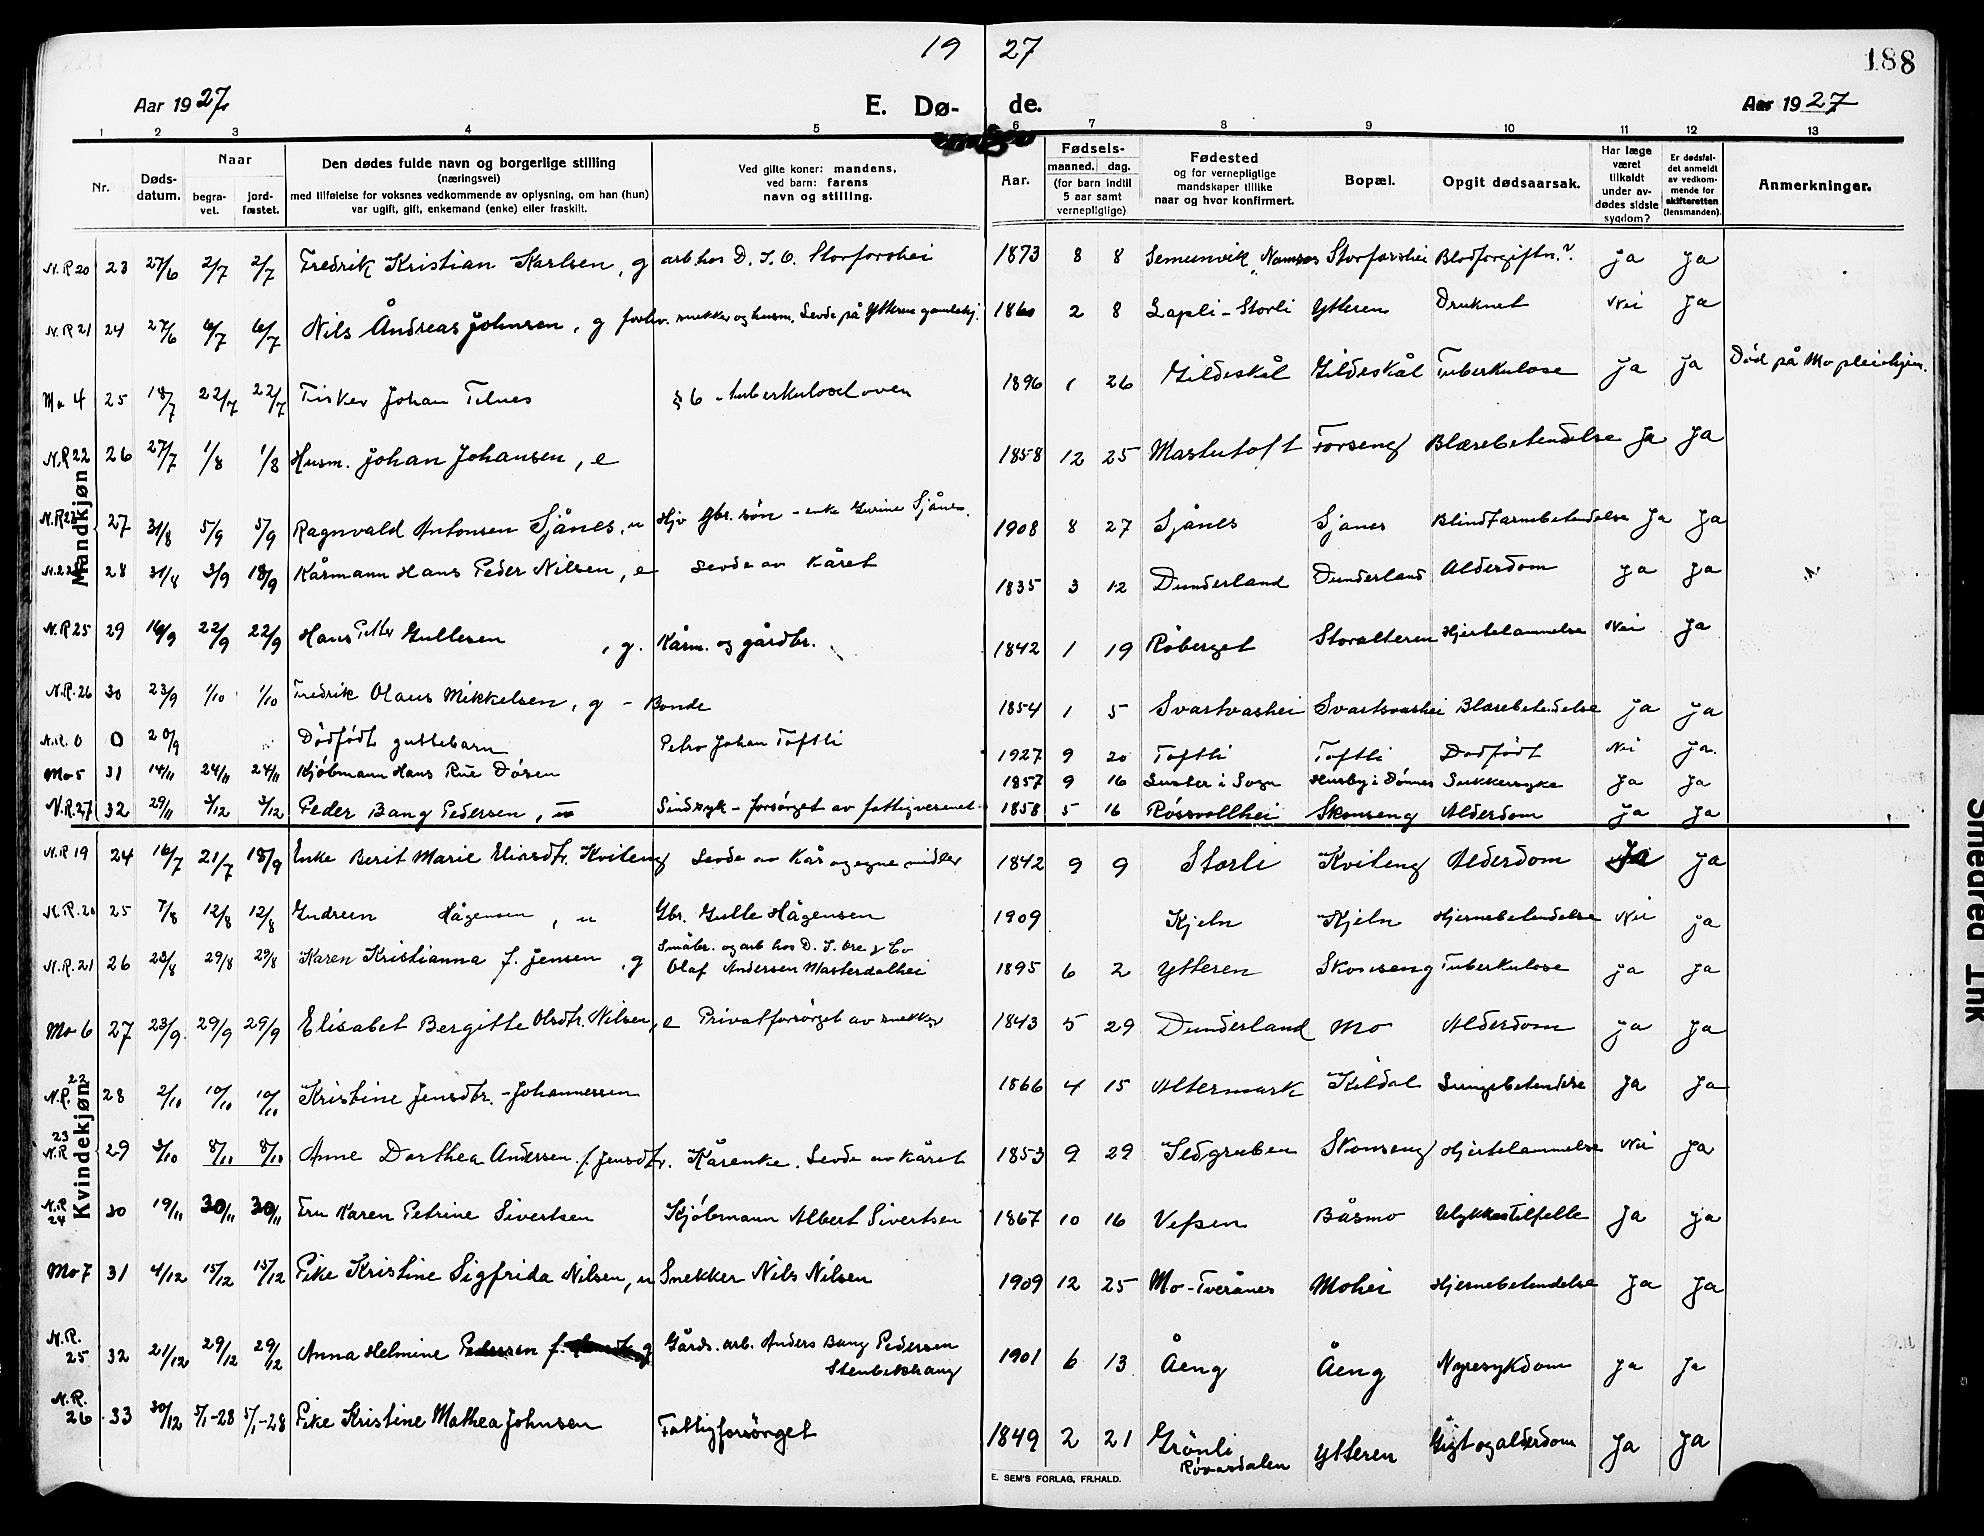 19 27
188
Aar 1927. E. Dø- de. Aar 1927
1 2 3 4 5 6 7 8 9 10 11 12 13
Nr. Døds-datum. Naar begra-vet. jord-fæstet. Den dødes fulde navn og borgerlige stilling (næringsvei) med tilføielse for voksnes vedkommende av oplysning, om han (hun) var ugift, gift, enkemand (enke) eller fraskilt. Ved gifte koner: mandens, ved barn: farens navn og stilling. Aar. Fødsels- maaned. dag. (for barn indtil 5 aar samt vernepligtige) Fødested og for vernepligtige mandskaper tillike naar og hvor konfirmert. Bopæl. Opgit dødsaarsak. Har læge været tilkaldt under av-dødes sidste sygdom? Er dødsfal-det anmeldt av vedkom-mende for skifteretten (lensmanden). Anmerkninger.
Mandkjøn
N.R 20 23 27/6 2/7 2/7 Fredrik Kristian Karlsen, g arb hos D. I. O. Storforshei 1873 8 8 Semunvik, Namsos Storforshei Blodforgiftn.? ja ja
N.R 21 24 27/6 6/7 6/7 Nils Andreas Johnsen, g forhv. snekker og husm. Levde på Ytteren gamlehj. 1860 2 8 Lapli - Storli Ytteren Druknet Nei ja
Mo 4 25 18/7 22/7 22/7 Fisker Johan Tilnes § 6 - tuberkuloseloven 1896 1 26 Gildeskål Gildeskål Tuberkulose ja ja Død på Mo pleiehjem.
N.R 22 26 27/7 1/8 1/8 Husm. Johan Johansen, e 1858 12 25 Mastutoft Forseng Blærebetendelse Ja Ja
N.R 23 27 31/8 5/9 5/9 Ragnvald Antonsen Sjånes, u Hjv gbr. søn - enke Gurine Sjånes. 1908 8 27 Sjånes Sjånes Blindtarmbetendelse Ja Ja
28 31/8 3/9 18/9 Kårmann Hans Peder Nilsen, e Levde av kåret 1835 3 12 Dunderland Dunderland Alderdom ja ja
N.R 25 29 16/9 22/9 22/9 Hans Petter Gullesen, g. Kårm. og gårdbr. 1842 1 19 Røberget Storalteren Hjertelammelse Nei ja
N.R. 26 30 23/9 1/10 1/10 Fredrik Olaus Mikkelsen, g - Bonde 1854 1 5 Svartvashei Svartvashei Blærebetendelse ja ja
N.R. 0 0 20/9 Dødfødt guttebarn Petro Johan Toftli 1927 9 20 Toftli Toftli Dødfødt Nei ja.
Mo 5 31 14/11 24/11 24/11 Kjøbmann Hans Rue Døsen 1857 9 16 Luster i Sogn Husby i Dønnes Sukkersyke ja ja
N.R. 27 32 29/11 3/12 3/12 Peder Bang Pedersen, u Sindssyk - forsørget av fattigvesenet 1858 5 16 Røssvollhei Skonseng Alderdom ja ja
Kvindekjøn
N.R 19 24 16/7 21/7 18/9 Enke Berit Marie Eliasdtr. Kviteng Levde av kår og egne midler 1842 9 9 Storli Kviteng Alderdom Ja ja
N.R. 20 25 7/8 12/8 12/8 Gudrun Hågensen, u Gbr. Gulle Hågensen 1909 Kjeln Kjeln Hjernebetendelse Nei ja
N.R. 21 26 23/8 29/8 29/8 Karen Kristianna f. Jensen, g Småbr. og arb hos D. I. Ore & Co
Olaf Andersen Masterdalhei 1895 6 2 Ytteren Skonseng Tuberkulose ja ja
Mo 6 27 23/9. 29/9 29/9 Elisabet Bergitte Olsdtr. Nilsen, e Privatforsørget av snekker 1843 5 29 Dunderland Mo Alderdom ja ja
N.R. 22 28 2/10 10/10 10/10 Kristine Jensdtr. - Johannessen 1866 4 15 Altermark Kildal Lungebetendelse ja ja
23 N.R 29 3/10 8/11 8/10 Anne Dorthea Andersen f. Jensdtr. Kårenke. Levde av kåret 1853 9 29 Ildgruben Skonseng Hjertelammelse Nei ja
N.R 24 30 19/11 30/11 30/11 Fru Karen Petrine Sivertsen Kjøbmann Albert Sivertsen 1867 10 16 Vefsen Båsmo Ulykkestilfelle Ja ja
Mo 7 31 4/12 15/12 15/12 Pike Kristine Sigfrida Nilsen, u Snekker Nils Nilsen 1909 12 25 Mo - Tverånes Mohei Hjernebetendelse ja ja
N.R. 25 32 21/12 29/12 29/12 Anna Helmine Pedersen f. g Gårds. arb. Anders Bang Pedersen
Stenbekhaug 1901 6 13 Åeng Åeng Nyresykdom ja ja
N.R. 26 33 30/12 5/1-28 5/1-28 Pike Kristine Mathea Johnsen Fattigforsørget 1849 2 21 Grønli
Røvasdalen Ytteren Gigt og alderdom ja ja
E. SEM'S FORLAG, FR.HALD.